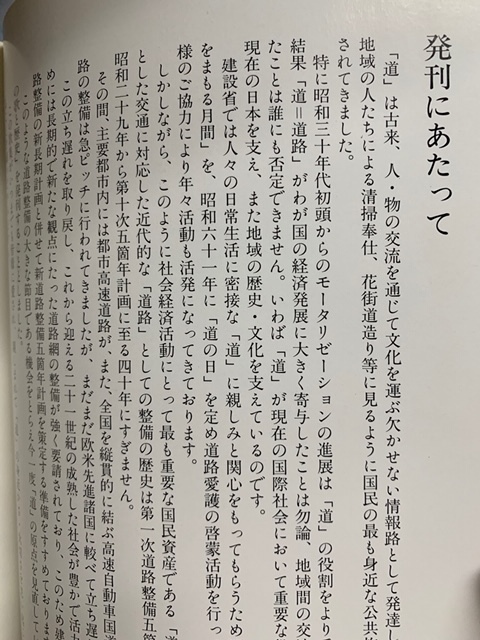 発刊にあたって
「道」は古来、人・物の交流を通じて文化を運ぶ欠かせない情報路として発達し
地域の人たちによる清掃奉仕、花街道造り等に見るように国民の最も身近な公共
されてきました。
特に昭和三十年代初頭からのモータリゼーションの進展は「道」の役割をより
結果「道＝道路」がわが国の経済発展に大きく寄与したことは勿論、地域間の交
たことは誰にも否定できません。いわば「道」が現在の国際社会において重要な
現在の日本を支え、また地域の歴史・文化を支えているのです。
建設省では人々の日常生活に密接な「道」に親しみと関心をもってもらうため
をまもる月間」を、昭和六十一年に「道の日」を定め道路愛護の啓蒙活動を行っ
様のご協力により年々活動も活発になってきております。
しかしながら、このように社会経済活動にとって最も重要な国民資産である「道
とした交通に対応した近代的な「道路」としての整備の歴史は第一次道路整備五
昭和二十九年から第十次五箇年計画に至る四十年にすぎません。
その間、主要都市内には都市高速道路が、また、全国を縦貫的に結ぶ高速自動車国道
路の整備は急ピッチに行われてきましたが、まだまだ欧米先進諸国に較べて立ち遅
この立ち遅れを取り戻し、これから迎える二十一世紀の成熟した社会が豊かで活力
めには長期的で新たな観点にたった道路網の整備が強く要請されており、このため建
路整備の新長期計画と併せて新道路整備五箇年計画を策定する準備をすすめておりま
このような道路整備の大きな節目である機会をとらえ今一度「道」の原点を見直して